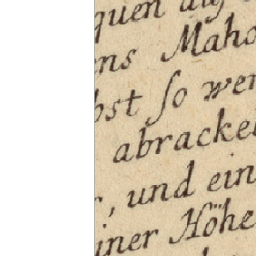 quen auf
ens Maho
bst so wer
abrackel
, und ein
iner Höhe